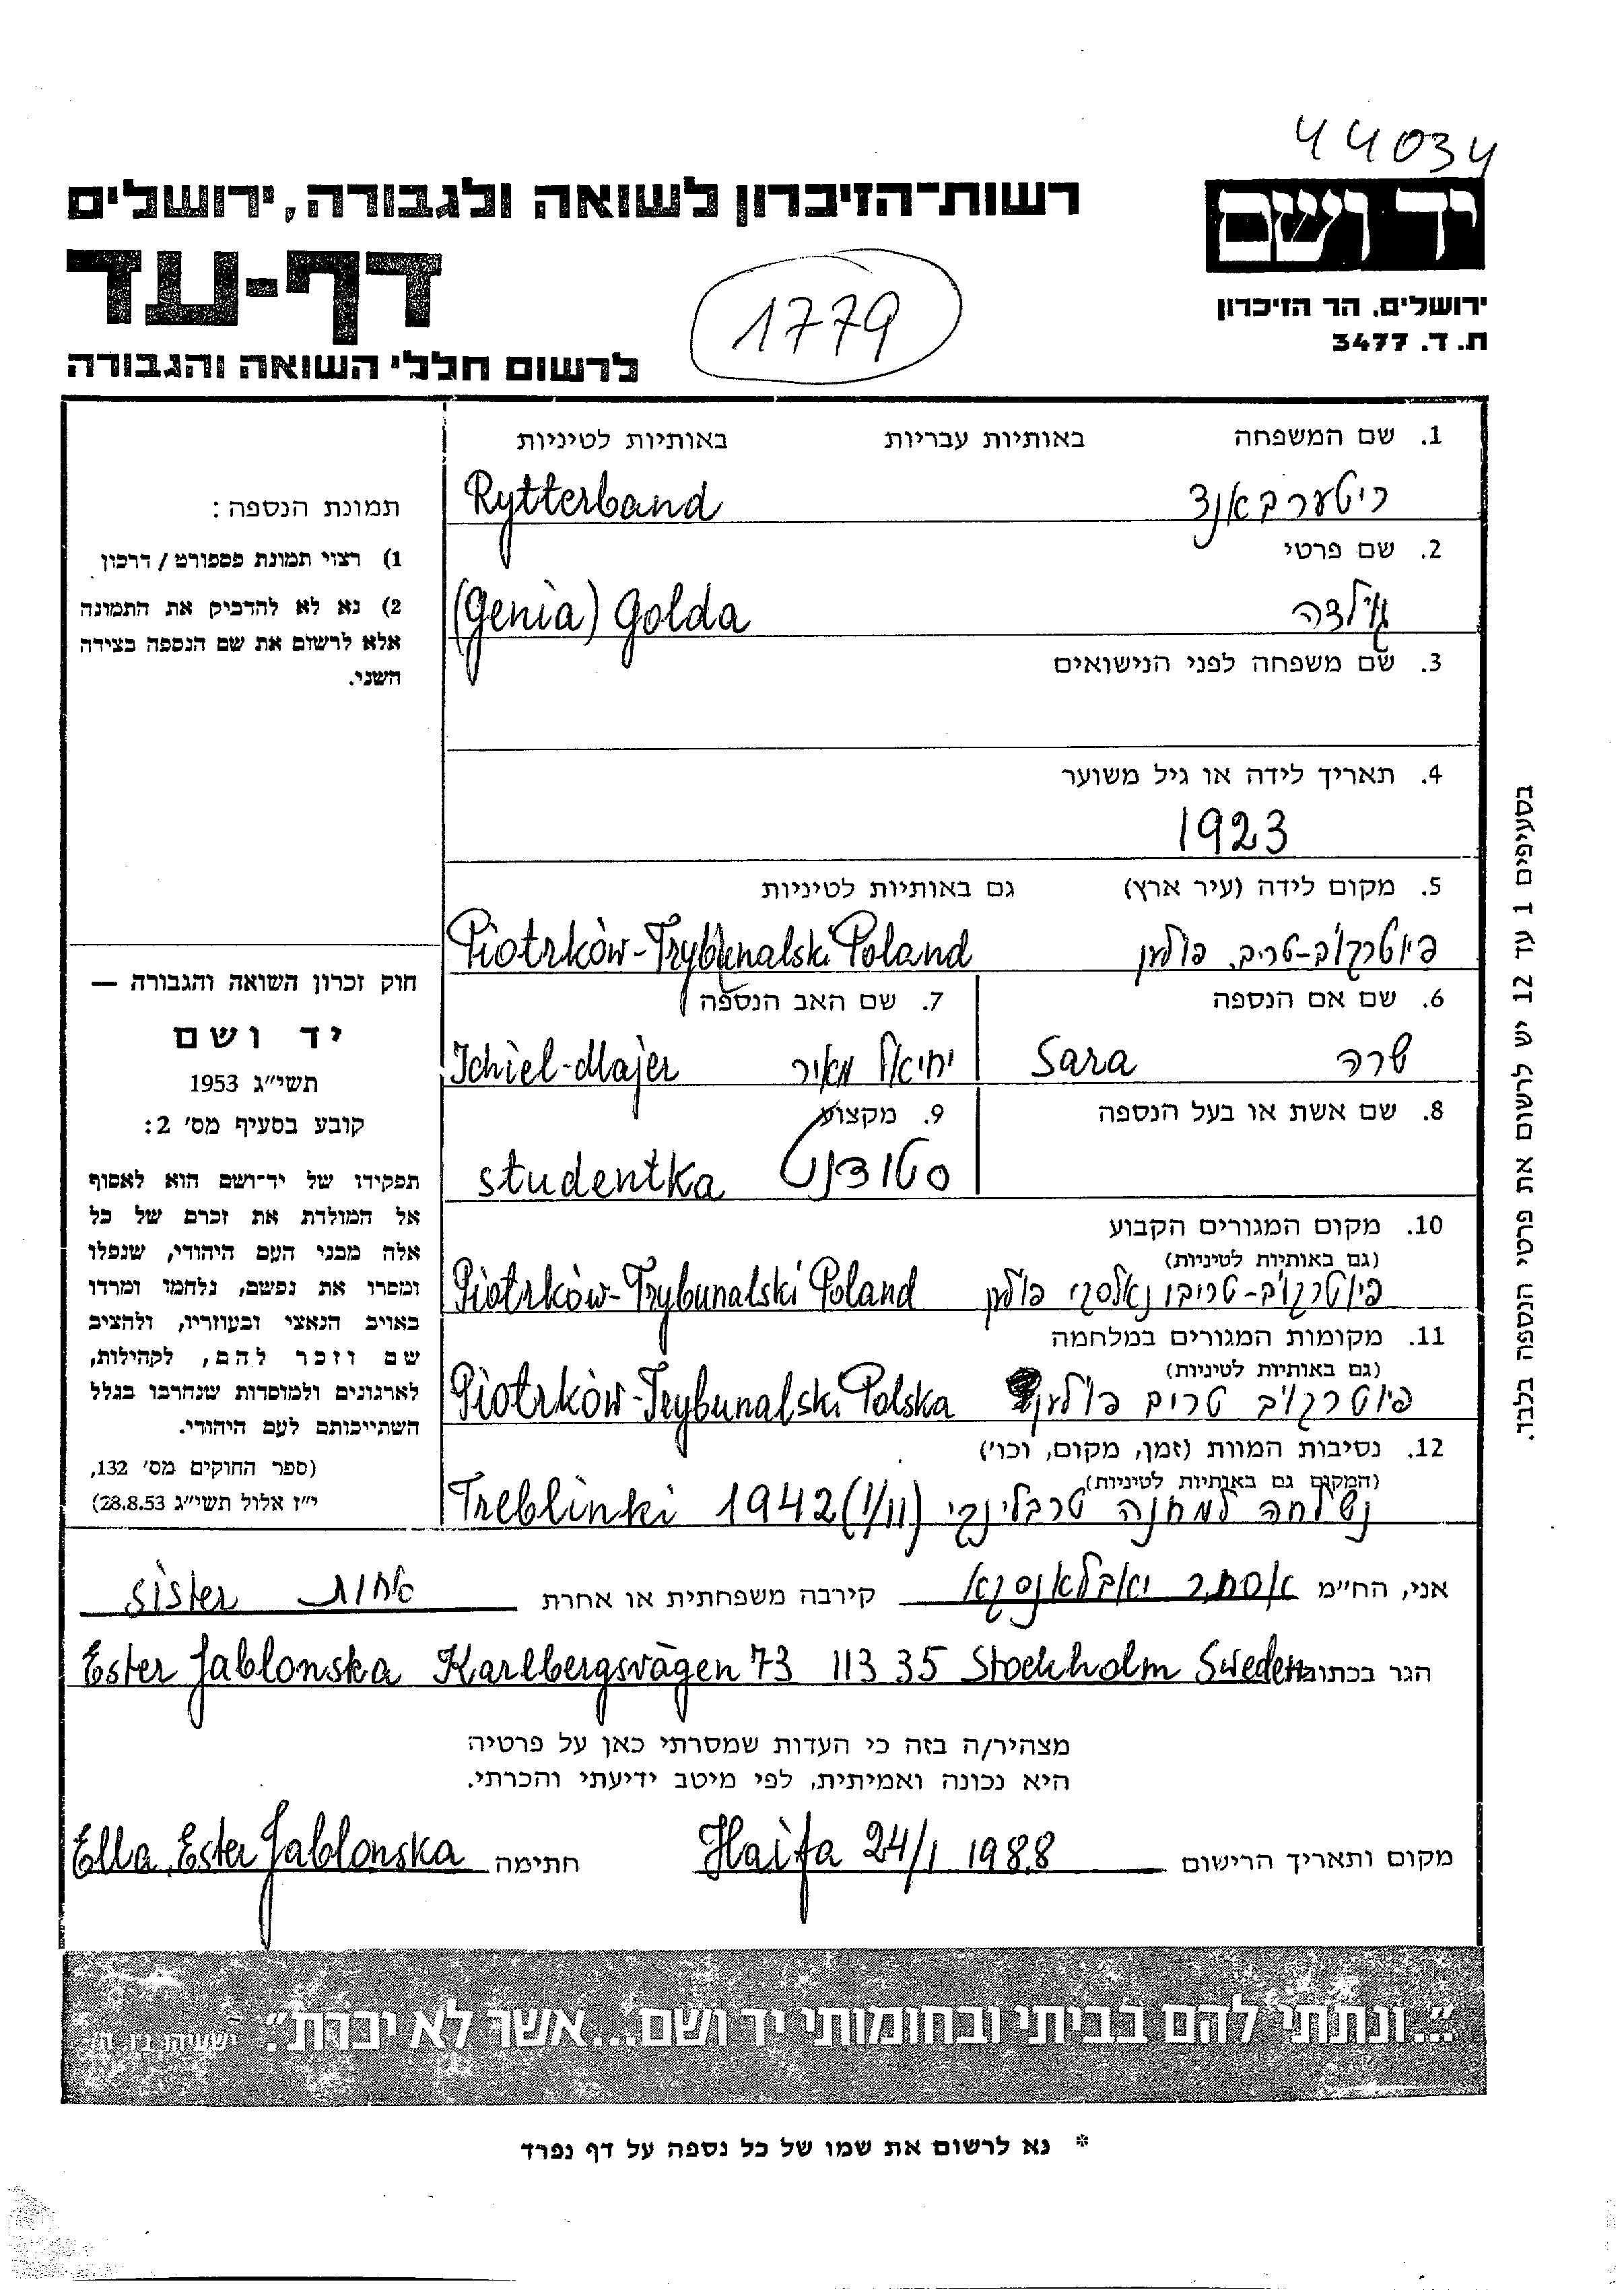 44034
יד ושם
ירושלים. הר הזיכרון
ת. ד. 3477
רשות־הזיכרון לשואה ולגבורה, ירושלים
דף-עד
לרשום חללי השואה והגבורה
1779
1. שם המשפחה באותיות עבריות באותיות לטיניות
ריטערבאנד Rytterband
2. שם פרטי
גולדה (Genia) Golda
3. שם משפחה לפני הנישואים
4. תאריך לידה או גיל משוער
1923
5. מקום לידה (עיר ארץ) גם באותיות לטיניות
פיוטרקוב-טריב. פולען Piotrków-Trybunalski Poland
6. שם אם הנספה 7. שם האב הנספה
שרה Sara יחיאל מאיר Ichiel-Majer
8. שם אשת או בעל הנספה 9. מקצוע
סטודנט studentka
10. מקום המגורים הקבוע
(גם באותיות לטיניות)
פיוטרקוב-טריבונאלסקי פולען Piotrków-Trybunalski Poland
11. מקומות המגורים במלחמה
(גם באותיות לטיניות)
פיוטרקוב טריב פולען Piotrków-Trybunalski Polska
12. נסיבות המוות (זמן, מקום, וכו')
(המקום גם באותיות לטיניות)
נשלחה למחנה טרבלינקי Treblinki 1942 (1/11)
תמונת הנספה:
1) רצוי תמונת פספורט / דרכון
2) נא לא להדביק את התמונה
אלא לרשום את שם הנספה בצידה
השני.
חוק זכרון השואה והגבורה —
יד ושם
תשי״ג 1953
קובע בסעיף מס׳ 2:
תפקידו של יד־ושם הוא לאסוף
אל המולדת את זכרם של כל
אלה מבני העם היהודי, שנפלו
ומסרו את נפשם, נלחמו ומרדו
באויב הנאצי ובעוזריו, ולהציב
שם וזכר להם, לקהילות,
לארגונים ולמוסדות שנחרבו בגלל
השתייכותם לעם היהודי.
(ספר החוקים מס׳ 132,
י״ז אלול תשי״ג 28.8.53)
בסעיפים 1 עד 12 יש לרשום את פרטי הנספה בלבד.
אני, הח״מ אסתר יאבלאנסקא קירבה משפחתית או אחרת אחות sister
הגר בכתובת Ester Jablonska Karlbergsvägen 73 113 35 Stockholm Sweden
מצהיר/ה בזה כי העדות שמסרתי כאן על פרטיה
היא נכונה ואמיתית, לפי מיטב ידיעתי והכרתי.
מקום ותאריך הרישום Haifa 24/1 1988 חתימה Ella Ester Jablonska
״...ונתתי להם בביתי ובחומותי יד ושם...אשר לא יכרת״. ישעיהו נ״ו, ה׳
* נא לרשום את שמו של כל נספה על דף נפרד